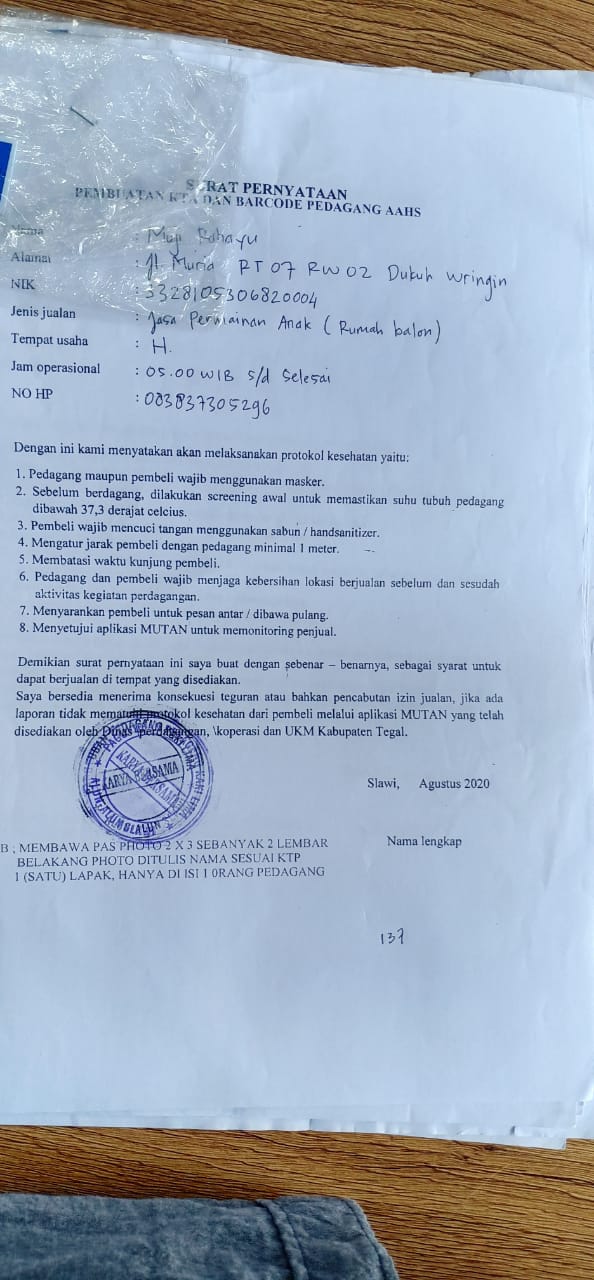 SURAT PERNYATAAN
PEMBUATAN KTA DAN BARCODE PEDAGANG AAHS
Nama : Muji Rahayu
Alamat : Jl. Muria RT 07 RW 02 Dukuh Wringin
NIK : 3328105306820004
Jenis jualan : Jasa Permainan Anak ( Rumah balon )
Tempat usaha : H.
Jam operasional : 05.00 WIB s/d Selesai
NO HP : 083837305296
Dengan ini kami menyatakan akan melaksanakan protokol kesehatan yaitu:
1. Pedagang maupun pembeli wajib menggunakan masker.
2. Sebelum berdagang, dilakukan screening awal untuk memastikan suhu tubuh pedagang
dibawah 37,3 derajat celcius.
3. Pembeli wajib mencuci tangan menggunakan sabun / handsanitizer.
4. Mengatur jarak pembeli dengan pedagang minimal 1 meter.
5. Membatasi waktu kunjung pembeli.
6. Pedagang dan pembeli wajib menjaga kebersihan lokasi berjualan sebelum dan sesudah
aktivitas kegiatan perdagangan.
7. Menyarankan pembeli untuk pesan antar / dibawa pulang.
8. Menyetujui aplikasi MUTAN untuk memonitoring penjual.
Demikian surat pernyataan ini saya buat dengan sebenar – benarnya, sebagai syarat untuk
dapat berjualan di tempat yang disediakan.
Saya bersedia menerima konsekuesi teguran atau bahkan pencabutan izin jualan, jika ada
laporan tidak mematuhi protokol kesehatan dari pembeli melalui aplikasi MUTAN yang telah
disediakan oleh Dinas perdagangan, \koperasi dan UKM Kabupaten Tegal.
KARYA BERSAMA
KARYA BERSAMA
Slawi, Agustus 2020
B ; MEMBAWA PAS PHOTO 2 X 3 SEBANYAK 2 LEMBAR
BELAKANG PHOTO DITULIS NAMA SESUAI KTP
1 (SATU) LAPAK, HANYA DI ISI 1 0RANG PEDAGANG
Nama lengkap
137